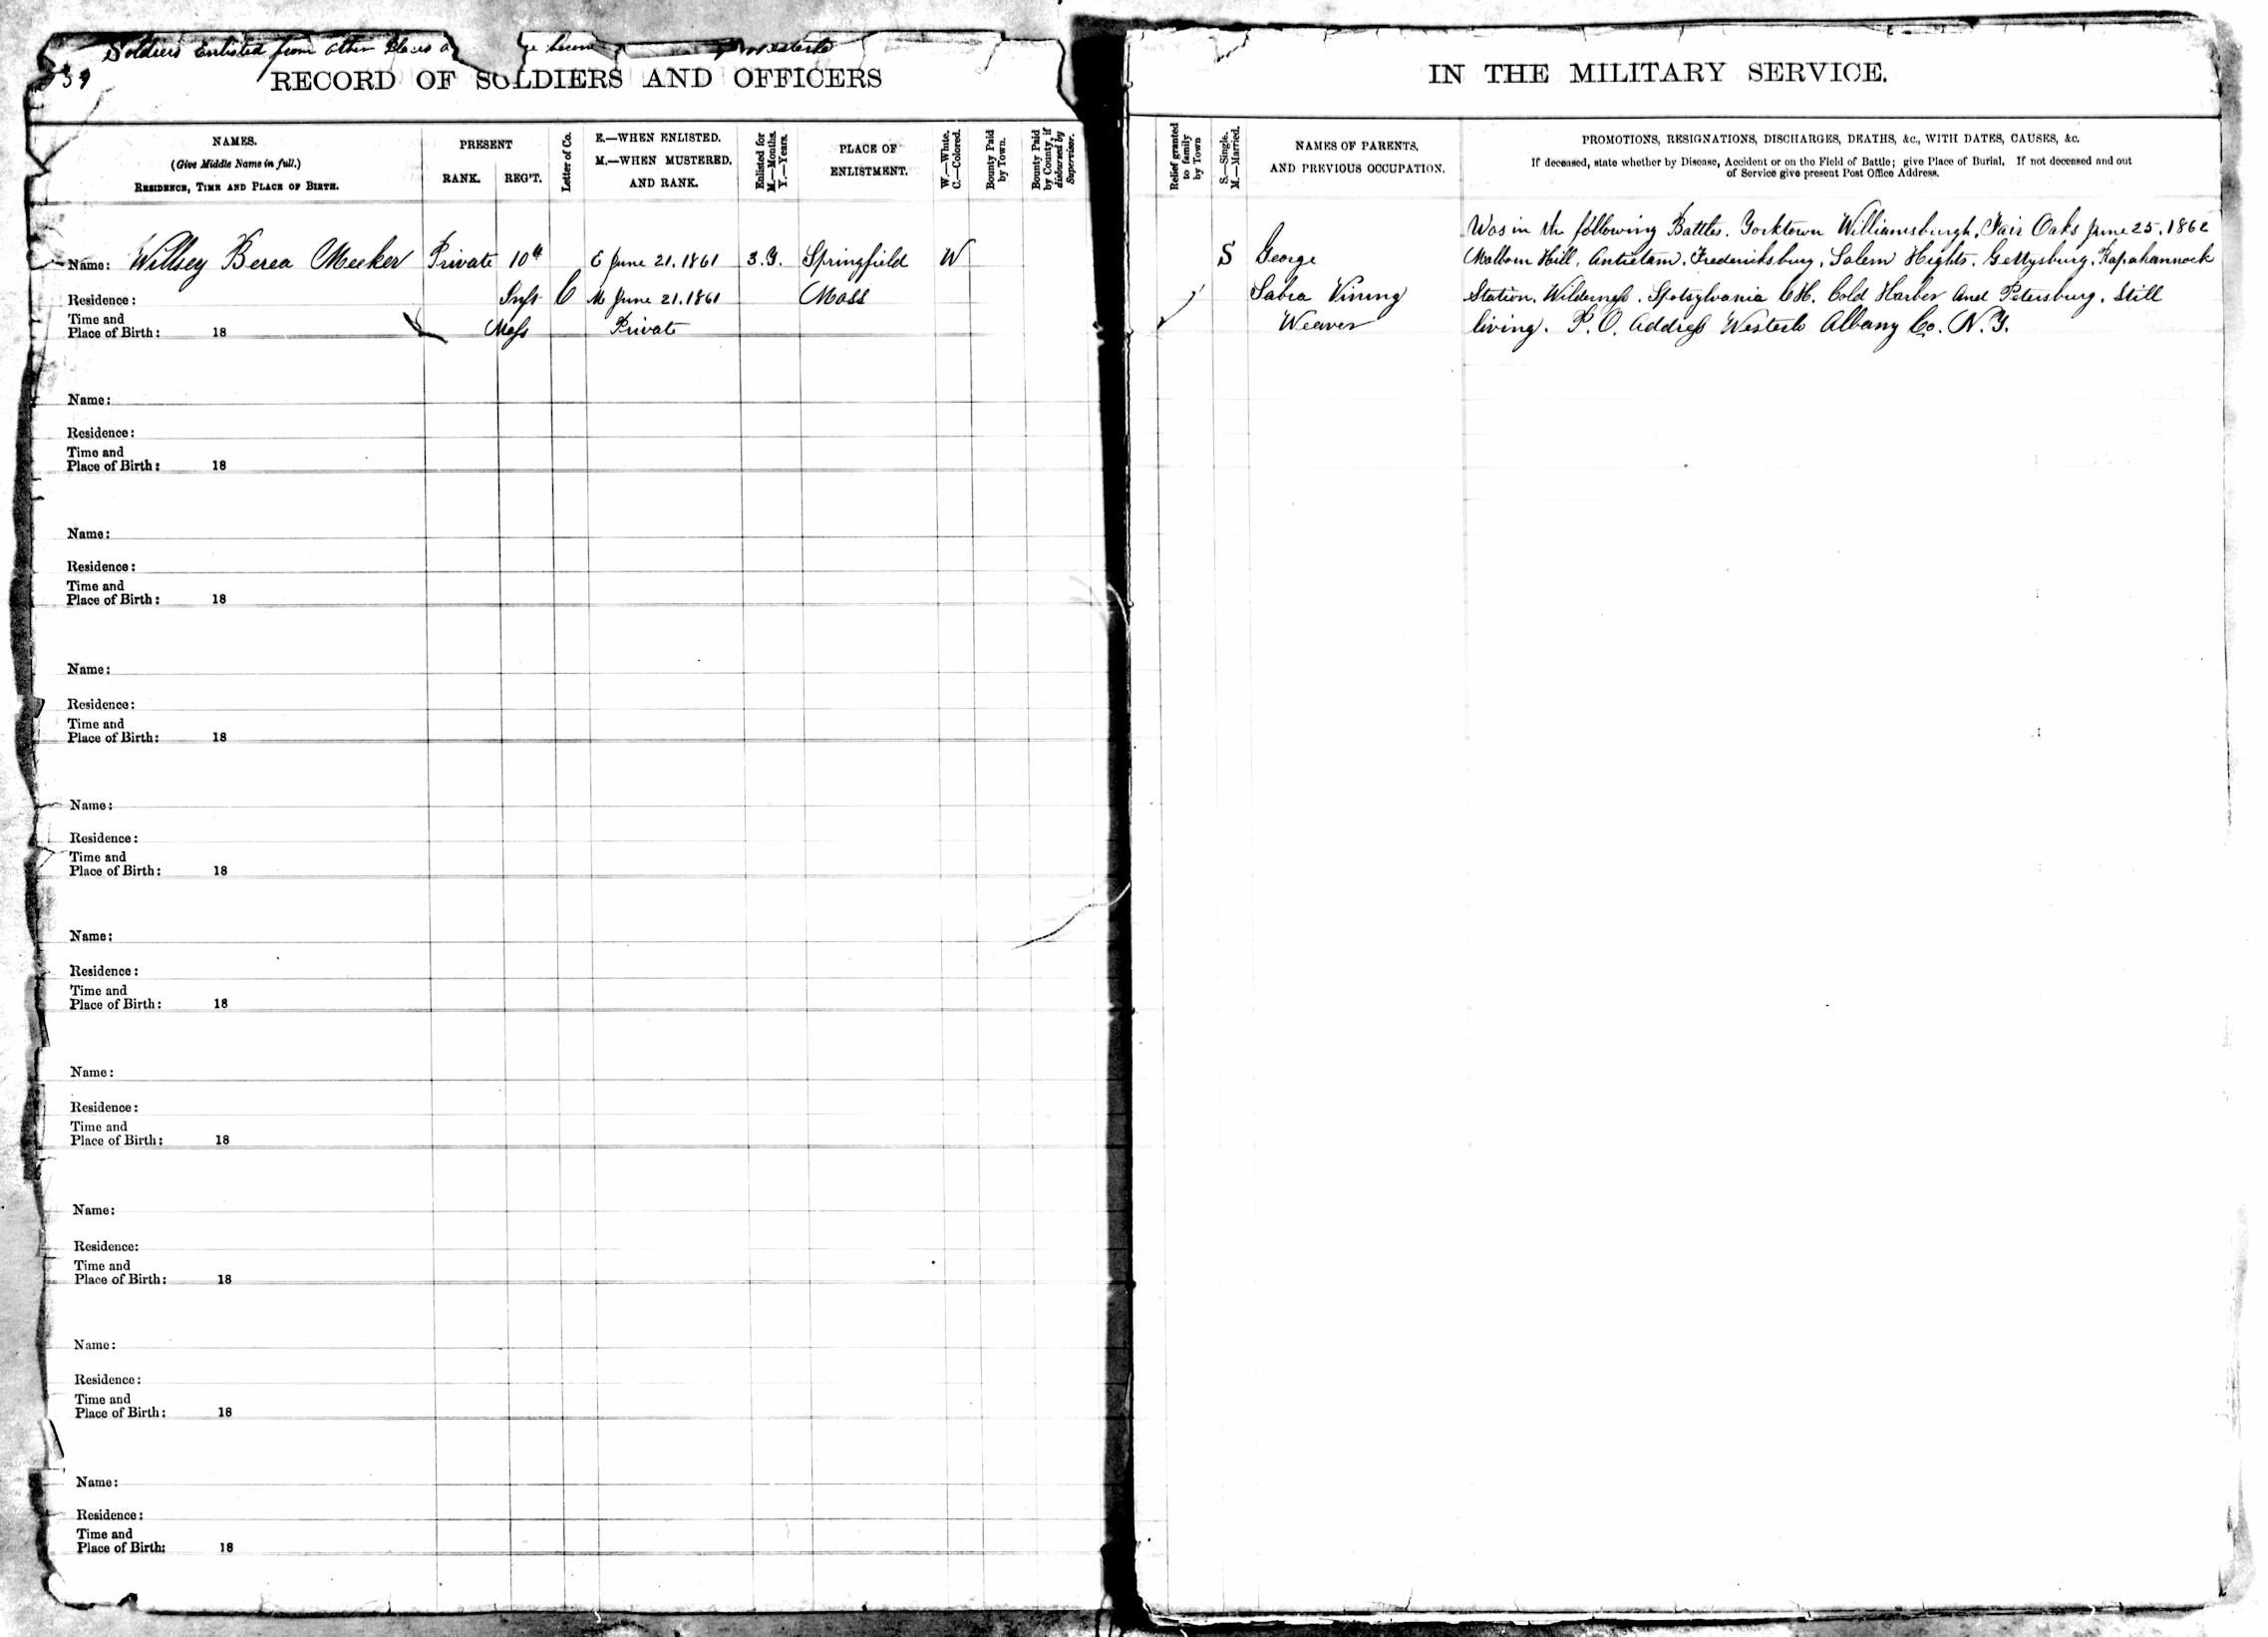 Soldiers Enlisted from other Places
39
RECORD OF SOLDIERS AND OFFICERS
IN THE MILITARY SERVICE.
NAMES.
(Give Middle Name in full.)
RESIDENCE, TIME AND PLACE OF BIRTH.
PRESENT
RANK. REG'T.
Letter of Co.
E.—WHEN ENLISTED.
M.—WHEN MUSTERED.
AND RANK.
Enlisted for
M.—Months.
Y.—Years.
PLACE OF
ENLISTMENT.
W.—White.
C.—Colored.
Bounty Paid
by Town.
Bounty Paid
by County, if
disbursed by
Supervisor.
Relief granted
to family
by Town
S.—Single.
M.—Married.
NAMES OF PARENTS,
AND PREVIOUS OCCUPATION.
PROMOTIONS, RESIGNATIONS, DISCHARGES, DEATHS, &c., WITH DATES, CAUSES, &c.
If deceased, state whether by Disease, Accident or on the Field of Battle; give Place of Burial. If not deceased and out
of Service give present Post Office Address.
Was in the following Battles. Yorktown Williamsburgh, Fair Oaks June 25, 1862
Name: Willsey Berea Meeker Private 10th E June 21. 1861 3.Y. Springfield W S George Malborn Hill, Antietam, Fredericksburg, Salem Hights. Gettysburg. Rapahannock
Residence: Inft C M June 21. 1861 Mass Sabra Vining Station. Wilderness. Spotsylvania C.H. Cold Harber And Petersburg. Still
Time and
Place of Birth: 18 Mass Private Weaver living. P.O. Address Westerlo Albany Co. N.Y.
Name:
Residence:
Time and
Place of Birth: 18
Name:
Residence:
Time and
Place of Birth: 18
Name:
Residence:
Time and
Place of Birth: 18
Name:
Residence:
Time and
Place of Birth: 18
Name:
Residence:
Time and
Place of Birth: 18
Name:
Residence:
Time and
Place of Birth: 18
Name:
Residence:
Time and
Place of Birth: 18
Name:
Residence:
Time and
Place of Birth: 18
Name:
Residence:
Time and
Place of Birth: 18